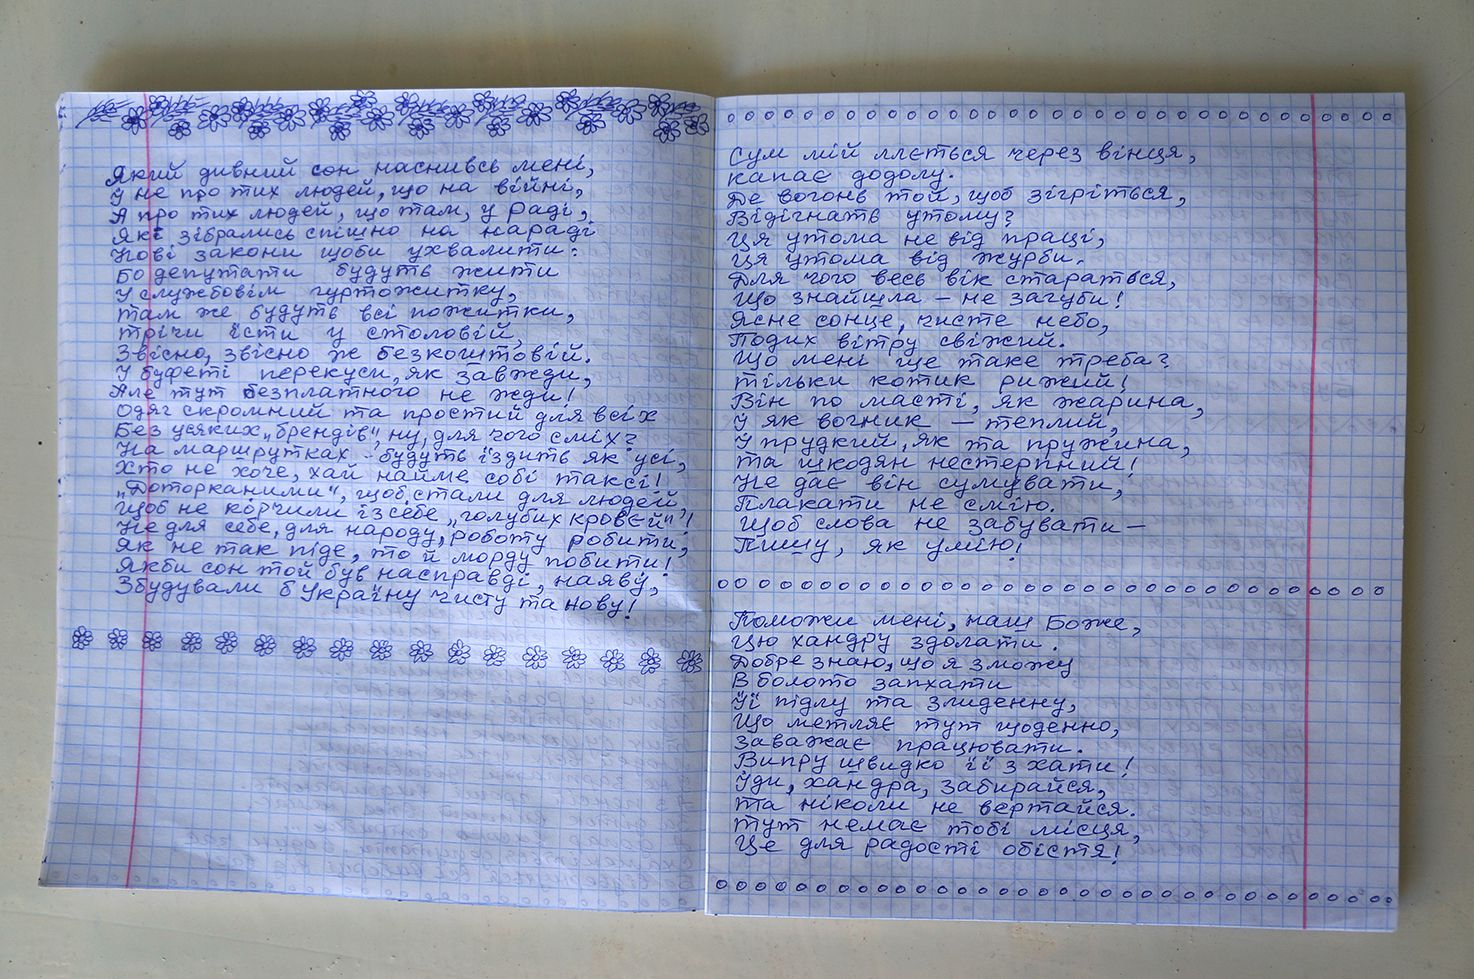 Який дивний сон наснивсь мені,
І не про тих людей, що на війні,
А про тих людей, що там, у раді,
Які зібрались спішно на нараді
Нові закони щоби ухвалити:
Бо депутати будуть жити
У службовім гуртожитку,
Там же будуть всі пожитки,
Тричі їсти у столовій,
Звісно, звісно ж безкоштовій.
У буфеті перекуси, як завжди,
Але тут безплатного не жди!
Одяг скромний та простий для всіх
Без усяких „брендів", ну, для чого сміх?
На маршрутках будуть їздить як усі,
Хто не хоче, хай найме собі таксі!
„Доторканими", щоб стали для людей,
Щоб не корчили із себе „голубих кровей"!
Не для себе, для народу, роботу робити,
Як не так піде, то й морду побити!
Якби сон той був насправді, наяву,
Збудували б Україну чисту та нову!
Сум мій ллється через вінця,
капає додолу.
Де вогонь той, щоб зігріться,
Відігнать утому?
Ця утома не від праці,
Ця утома від журби.
Для чого весь вік стараться,
Що знайшла – не загуби!
Ясне сонце, чисте небо,
Подих вітру свіжий.
Що мені ще таке треба?
Тільки котик рижий!
Він по масті, як жарина,
І як вогник – теплий,
І прудкий, як та пружина,
Та шкодян нестерпний!
Не дає він сумувати,
Плакати не смію.
Щоб слова не забувати –
Пишу, як умію!
Поможи мені, наш Боже,
Цю хандру здолати.
Добре знаю, що я зможу
В болото запхати
Її підлу та злиденну,
Що метляє тут щоденно,
Заважає працювати.
Випру швидко її з хати!
Іди, хандра, забирайся,
Та ніколи не вертайся.
Тут немає тобі місця,
Це для радості обістя!